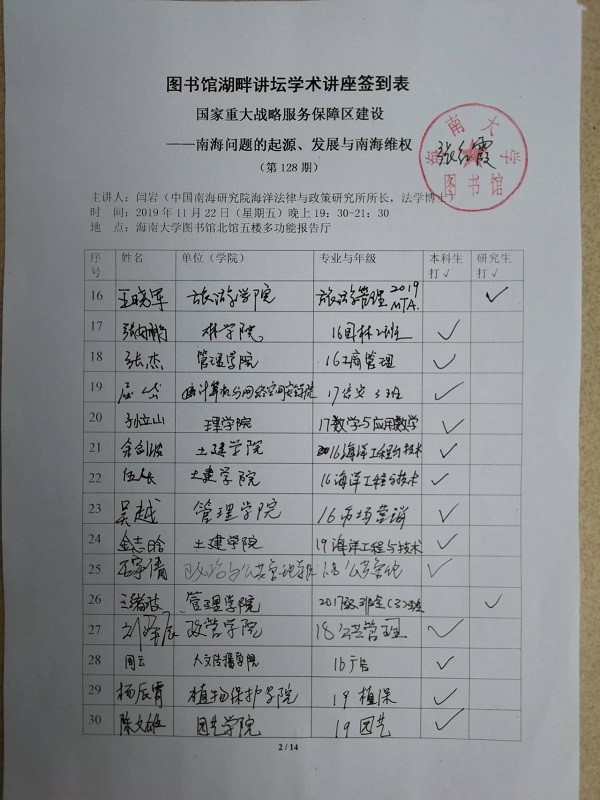 图书馆湖畔讲坛学术讲座签到表
国家重大战略服务保障区建设
——南海问题的起源、发展与南海维权
（第128期）
海南大学
图书馆
张红霞
主讲人：闫岩（中国南海研究院海洋法律与政策研究所所长，法学博士）
时 间：2019年11月22日（星期五）晚上19：30-21：30
地 点：海南大学图书馆北馆五楼多功能报告厅
序号 姓名 单位（学院） 专业与年级 本科生打√ 研究生打√
16 王晓军 旅游学院 旅游管理2019 MTA. √
17 林学院 16园林2班 √
18 张杰 管理学院 16工商管理 √
19 计算机与网络空间安全学院 17信安3班 √
20 孙立山 理学院 17数学与应用数学 √
21 土建学院 2016海洋工程与技术 √
22 土建学院 16海洋工程与技术 √
23 吴越 管理学院 16市场营销 √
24 金志晗 土建学院 19海洋工程与技术 √
25 政治与公共管理学院 18公共管理 √
26 管理学院 2017级 √
27 政管学院 18公共管理 √
28 周云 人文传播学院 16广告 √
29 杨辰霄 植物保护学院 19植保 √
30 陈文雄 园艺学院 19园艺 √
2 / 14